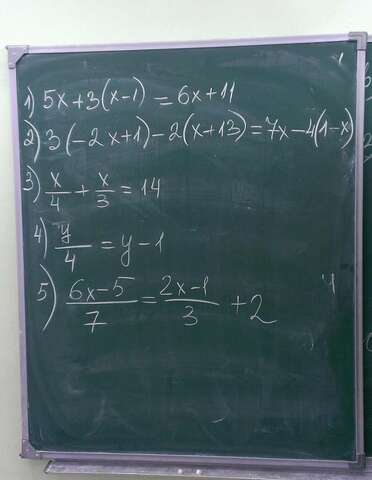 1) 5x+3(x-1) = 6x+11
2) 3(-2x+1)-2(x+13)=7x-4(1-x)
3) x/4 + x/3 = 14
4) y/4 = y-1
5) (6x-5)/7 = (2x-1)/3 + 2